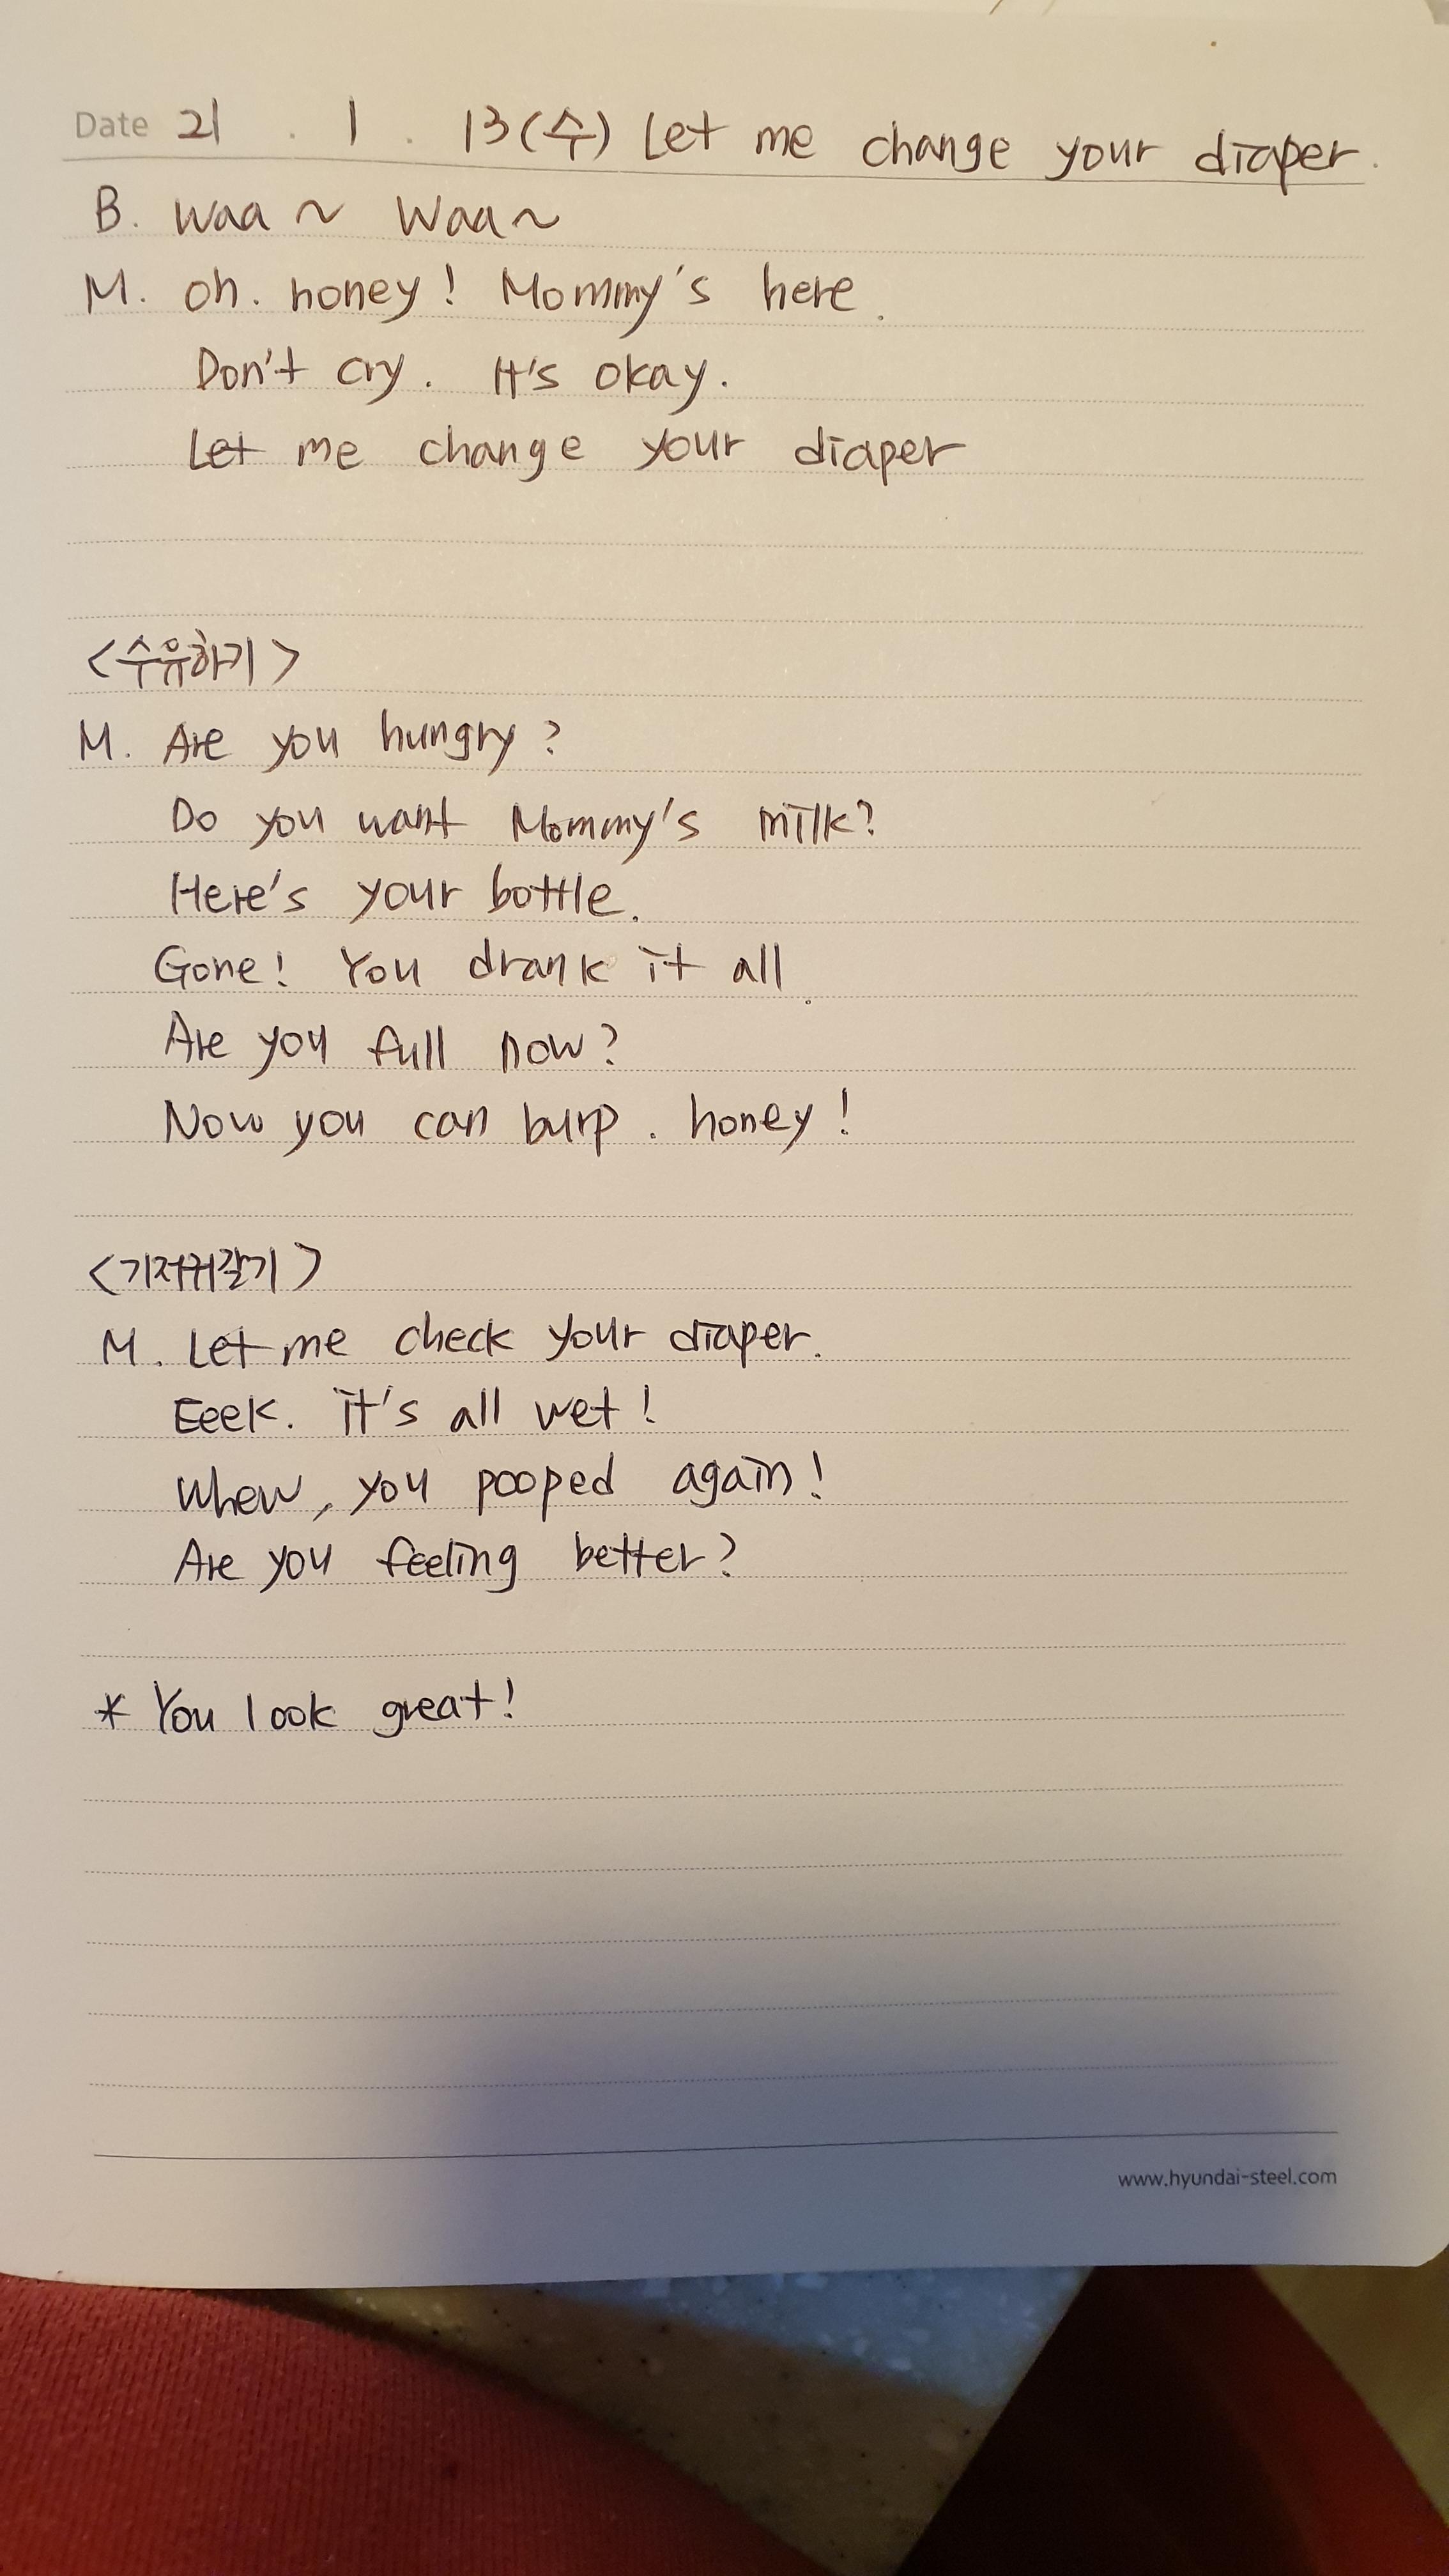 Date 21 . 1 . 13(수) Let me change your diaper.
B. waa ~ Waa~
M. oh. honey! Mommy's here.
Don't cry. It's okay.
Let me change your diaper
<수유하기>
M. Are you hungry?
Do you want Mommy's milk?
Here's your bottle.
Gone! You drank it all.
Are you full now?
Now you can burp. honey!
<기저귀갈기>
M. Let me check your diaper.
Eeek. it's all wet!
Whew, you pooped again!
Are you feeling better?
* You look great!
www.hyundai-steel.com